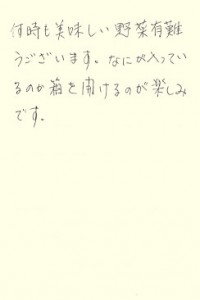 何時も美味しい野菜有難
うございます。なにが入ってい
るのか箱を開けるのが楽しみ
です。